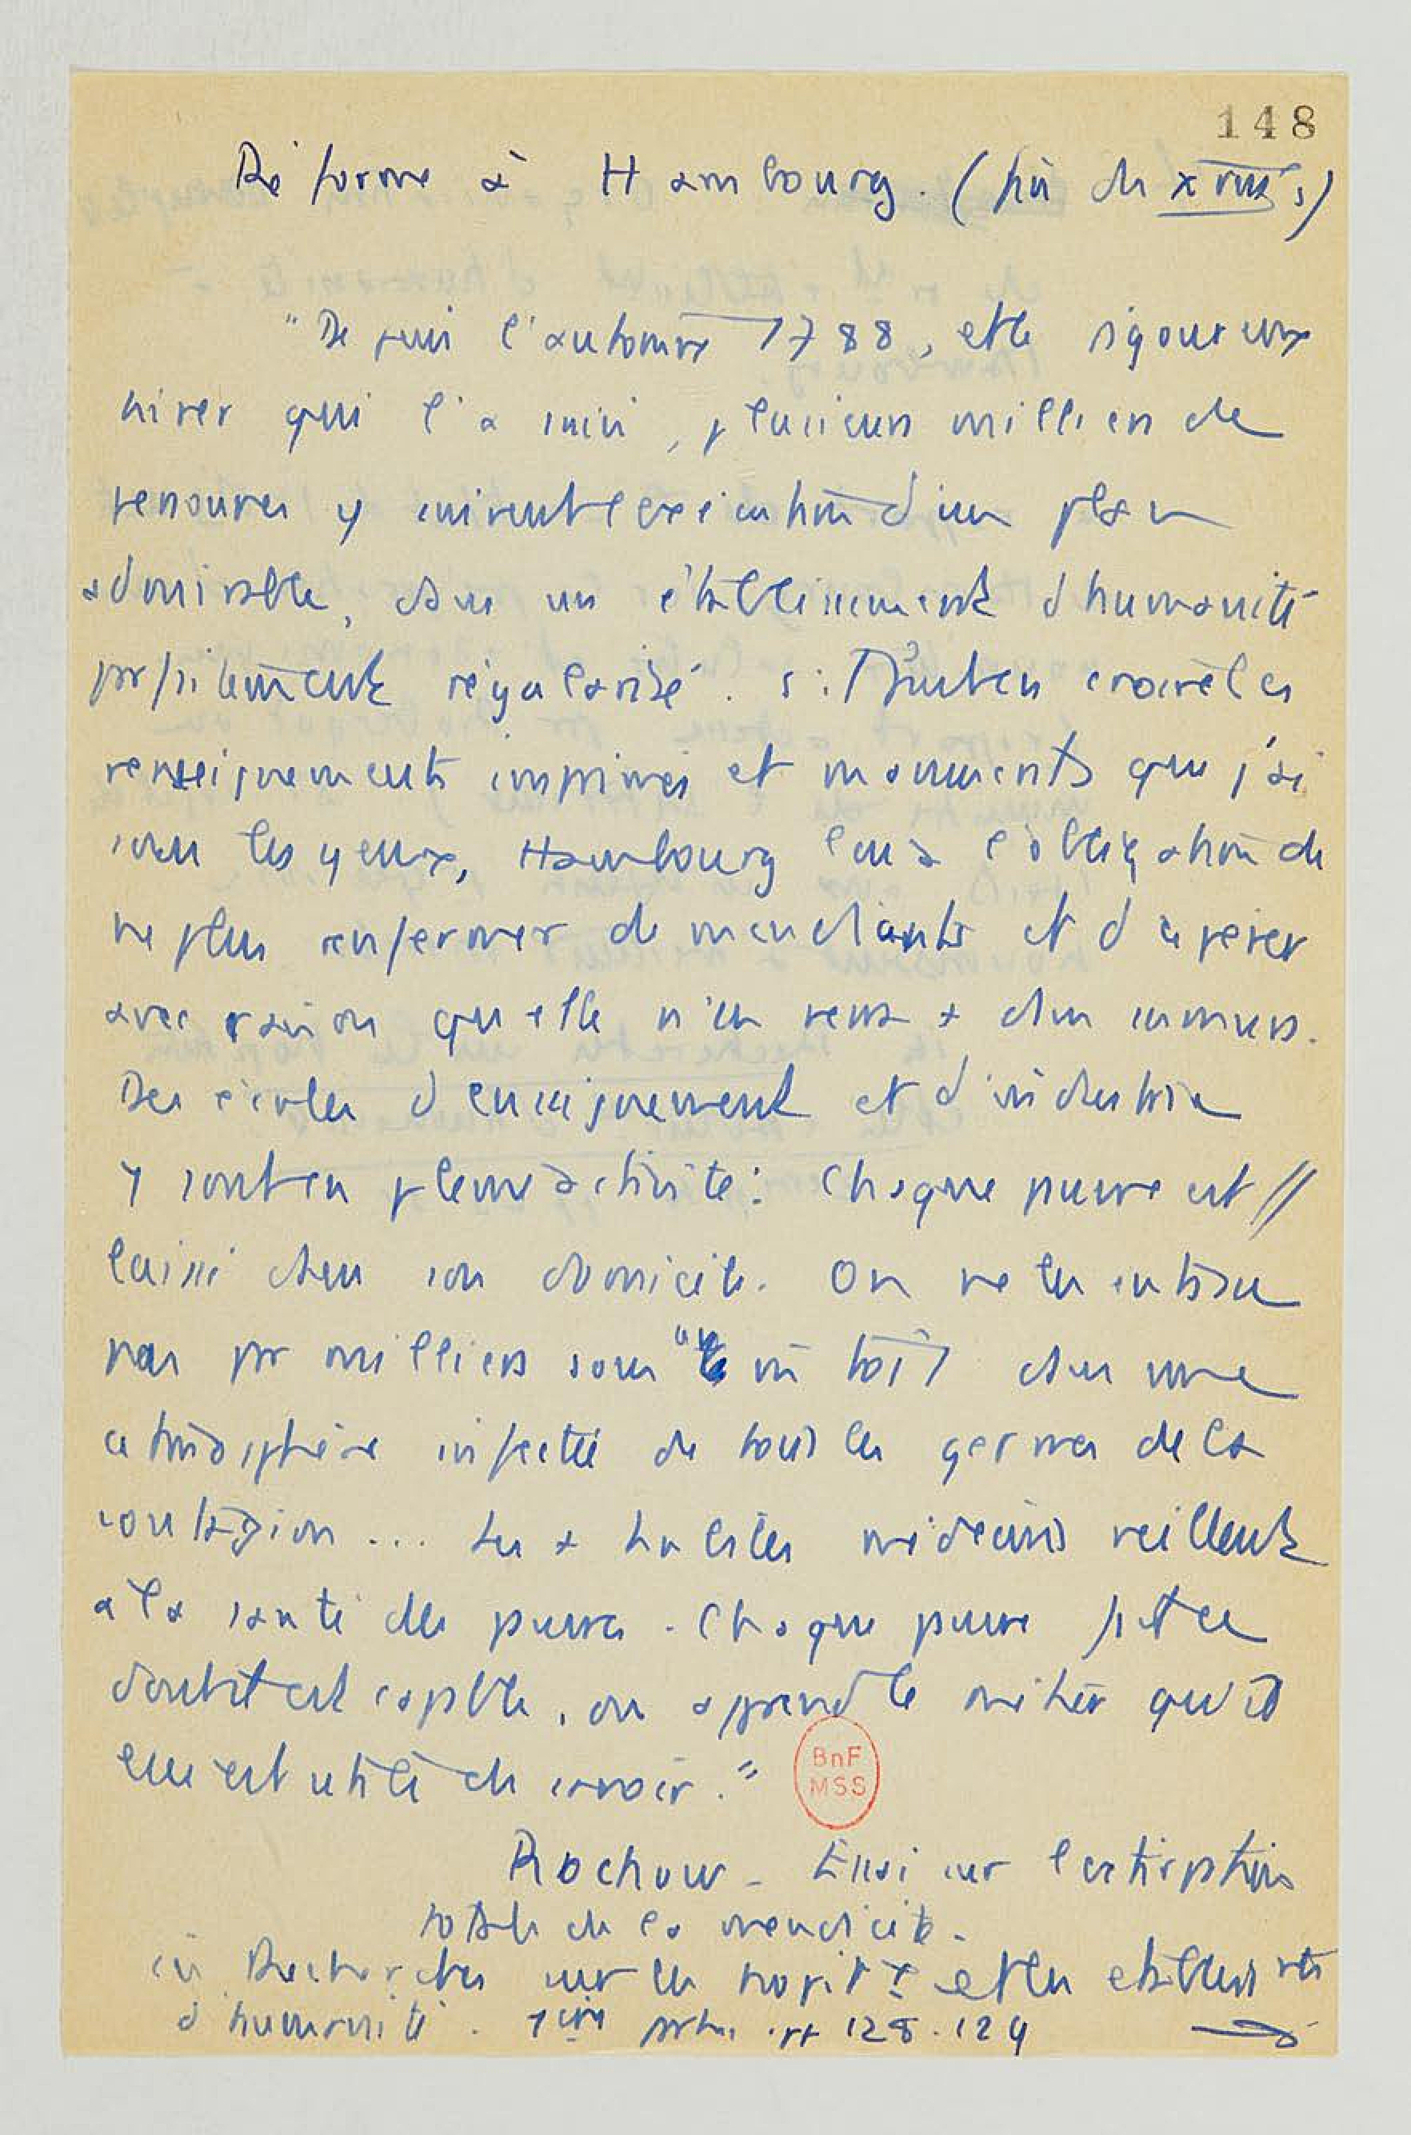 148
Réforme à Hambourg. (fin du XVIIIe s)
"Depuis l'automne 1788, et le rigoureux
hiver qui l'a suivi, plusieurs milliers de
personnes y suivent l'exécution d'un plan
admirable, dans un établissement d'humanité
parfaitement régularisé. S'il faut en croire les
renseignements imprimés et manuscrits que j'ai
sous les yeux, Hambourg leur a l'obligation de
ne plus renfermer de mendiants et d'espérer
avec raison qu'elle n'en verra + dans ses murs.
Des écoles d'enseignement et d'industrie
y sont en pleine activité : Chaque pauvre est //
laissé dans son domicile. On ne les entasse
pas par milliers sous "un toit dans une
atmosphère infectée de tous les germes de la
contagion... Les + habiles médecins veillent
à la santé des pauvres. Chaque pauvre fait ce
dont il est capable, on apprend le métier qu'il
leur est utile de savoir."
BnF
MSS
Rochow - Essai sur l'extirpation
totale de la mendicité.
in Recherches sur les hopitx et les etablissmts
d'humanité. 1ère partie. pp 128-129